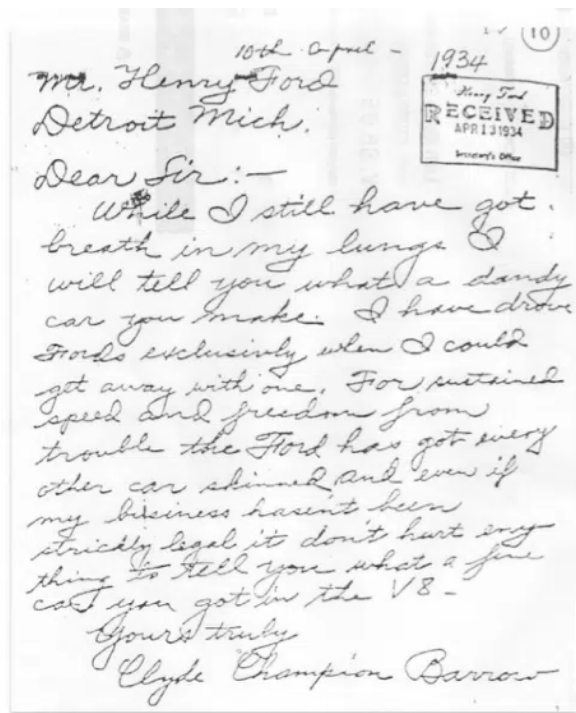 10
10th April - 1934
Mr. Henry Ford
Detroit Mich.
Henry Ford
RECEIVED
APR 13 1934
Secretary's Office
Dear Sir:-
While I still have got
breath in my lungs I
will tell you what a dandy
car you make. I have drove
Fords exclusivly when I could
get away with one. For sustained
speed and freedom from
trouble the Ford has got every
other car skinned and even if
my bisiness hasen't been
strickly legal it don't hurt eny
thing to tell you what a fine
car you got in the V8-
Yours truly
Clyde Champion Barrow